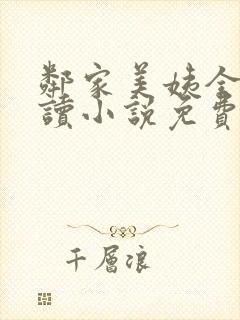 鄰家美姨全
讀小說免費
千層浪